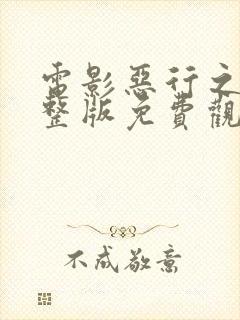 電影惡行之
整版免費觀
不成敬意